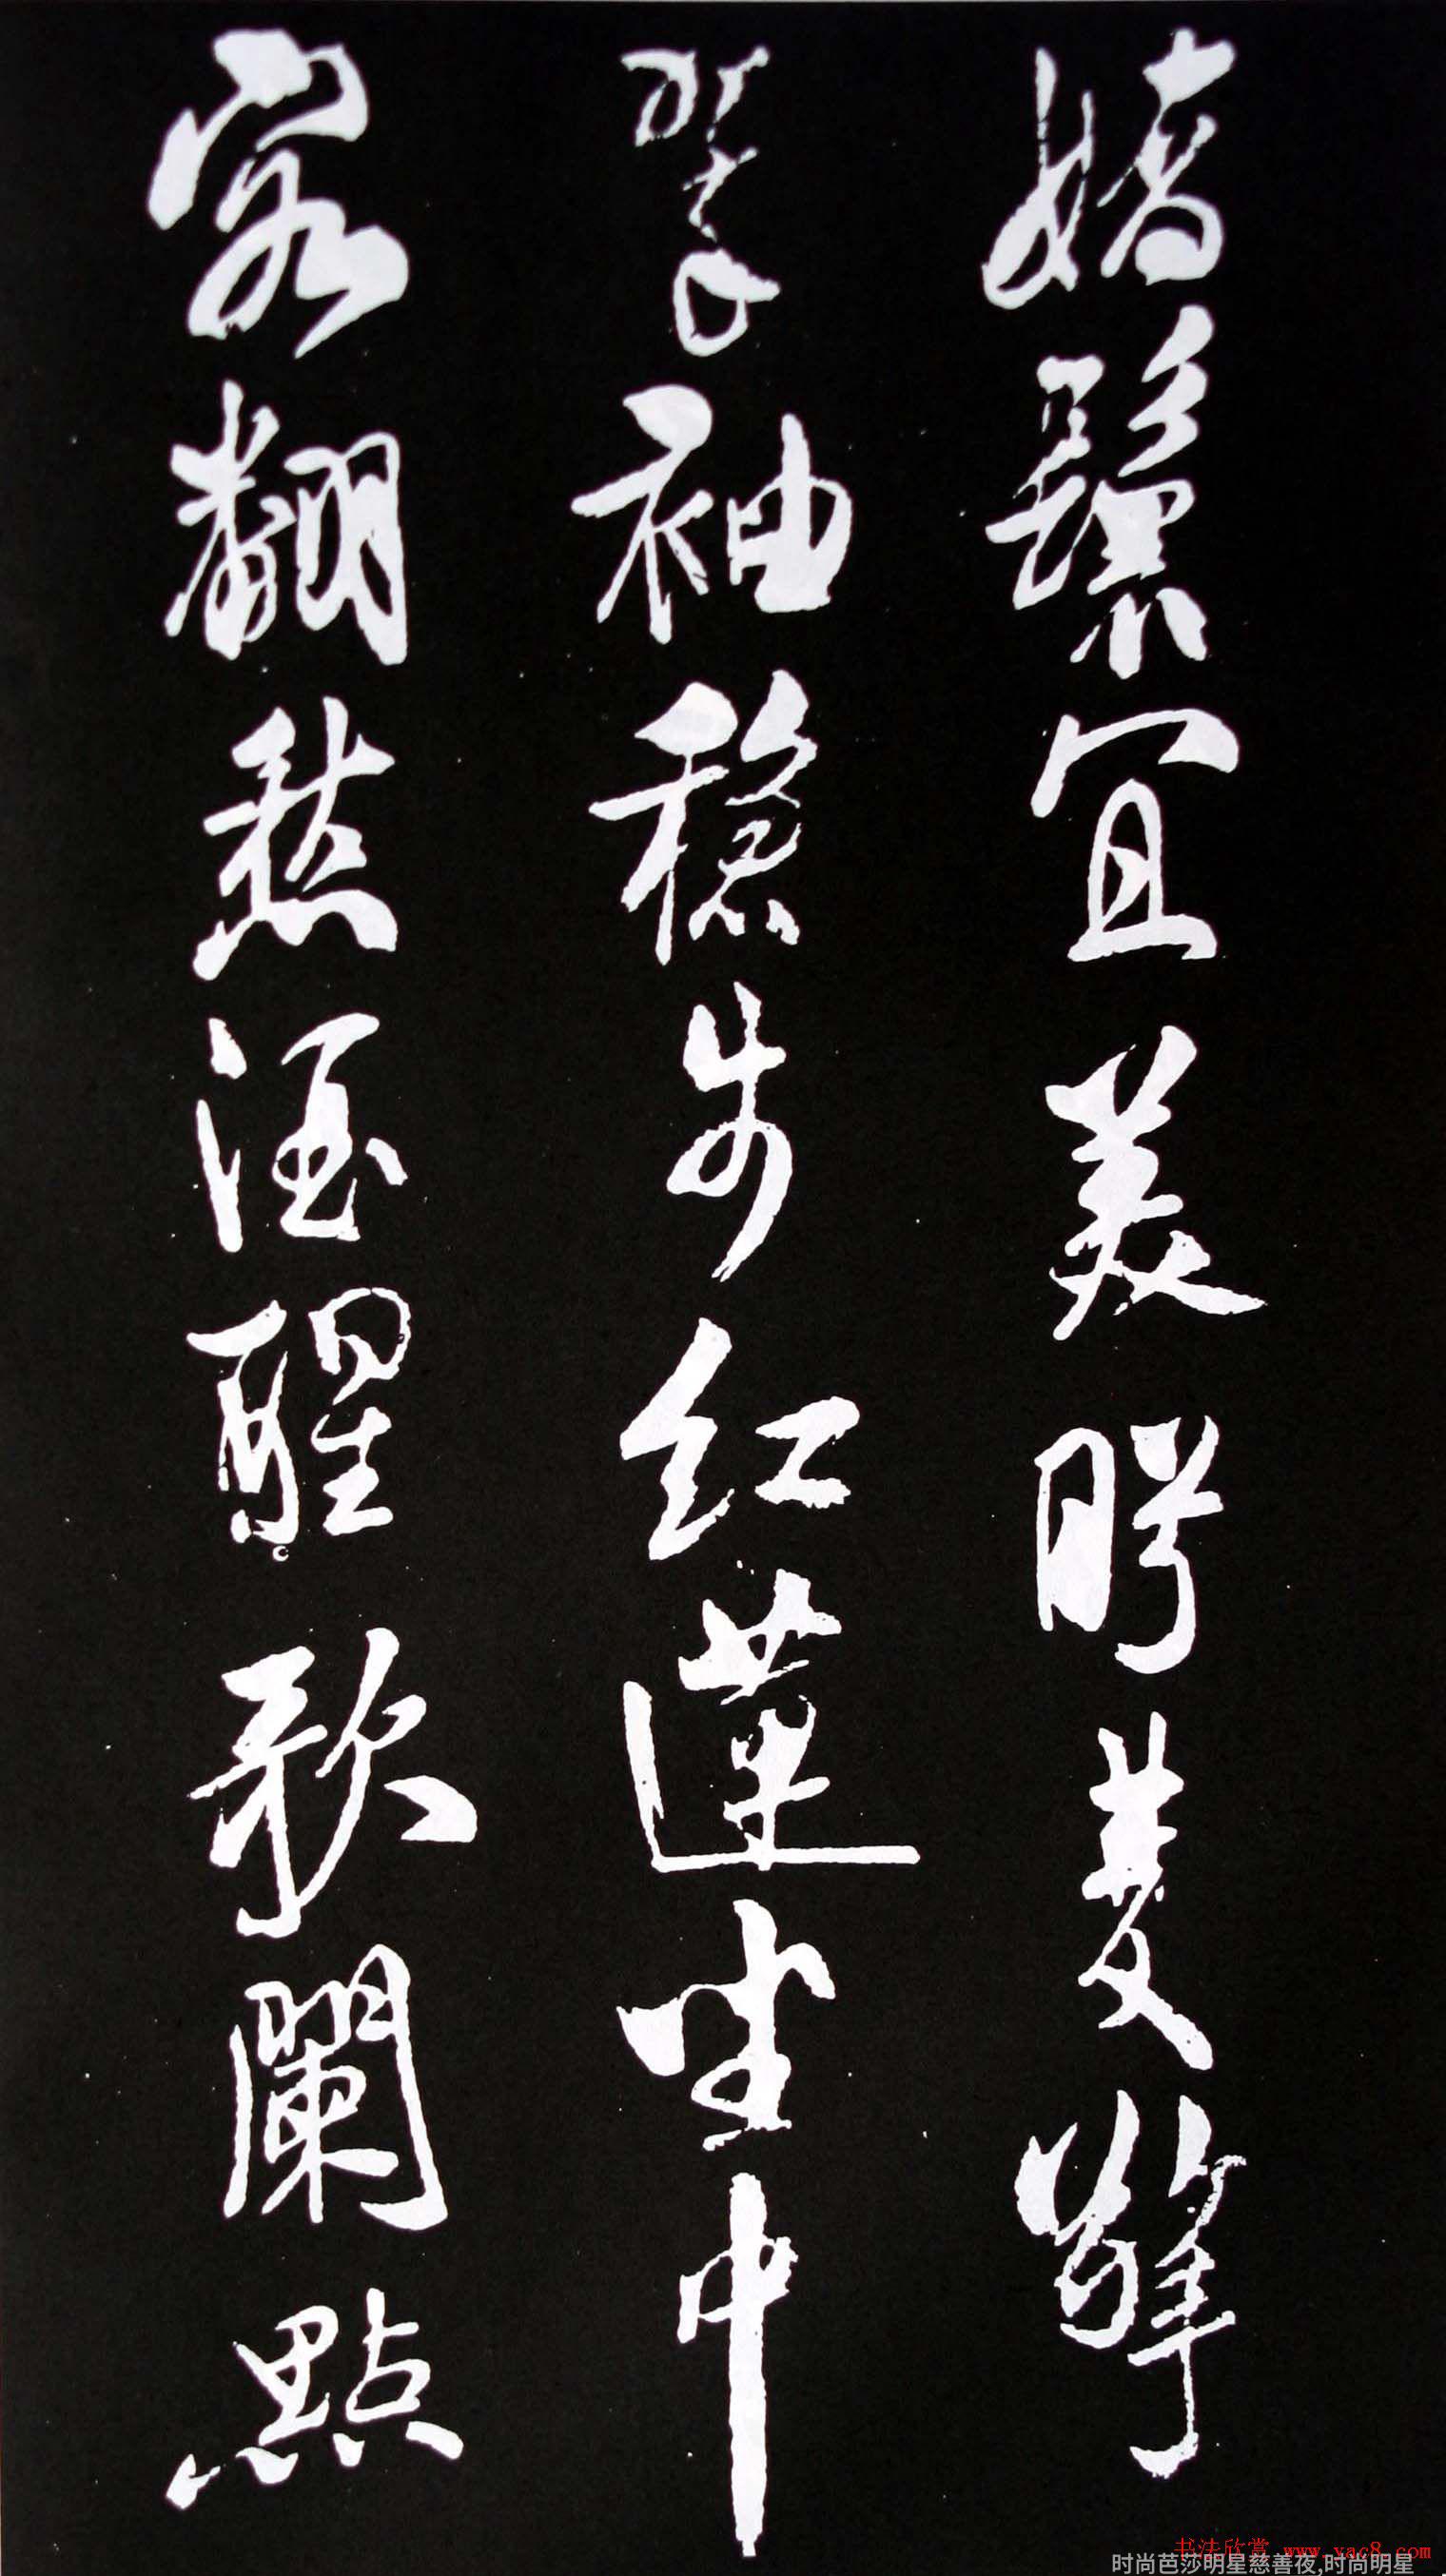 嬌鬟宜美盻雙擎
翠袖穩步紅蓮坐中
客翻愁酒醒歌闌點
书法欣赏 www.yac8.com
时尚芭莎明星慈善夜,时尚明星